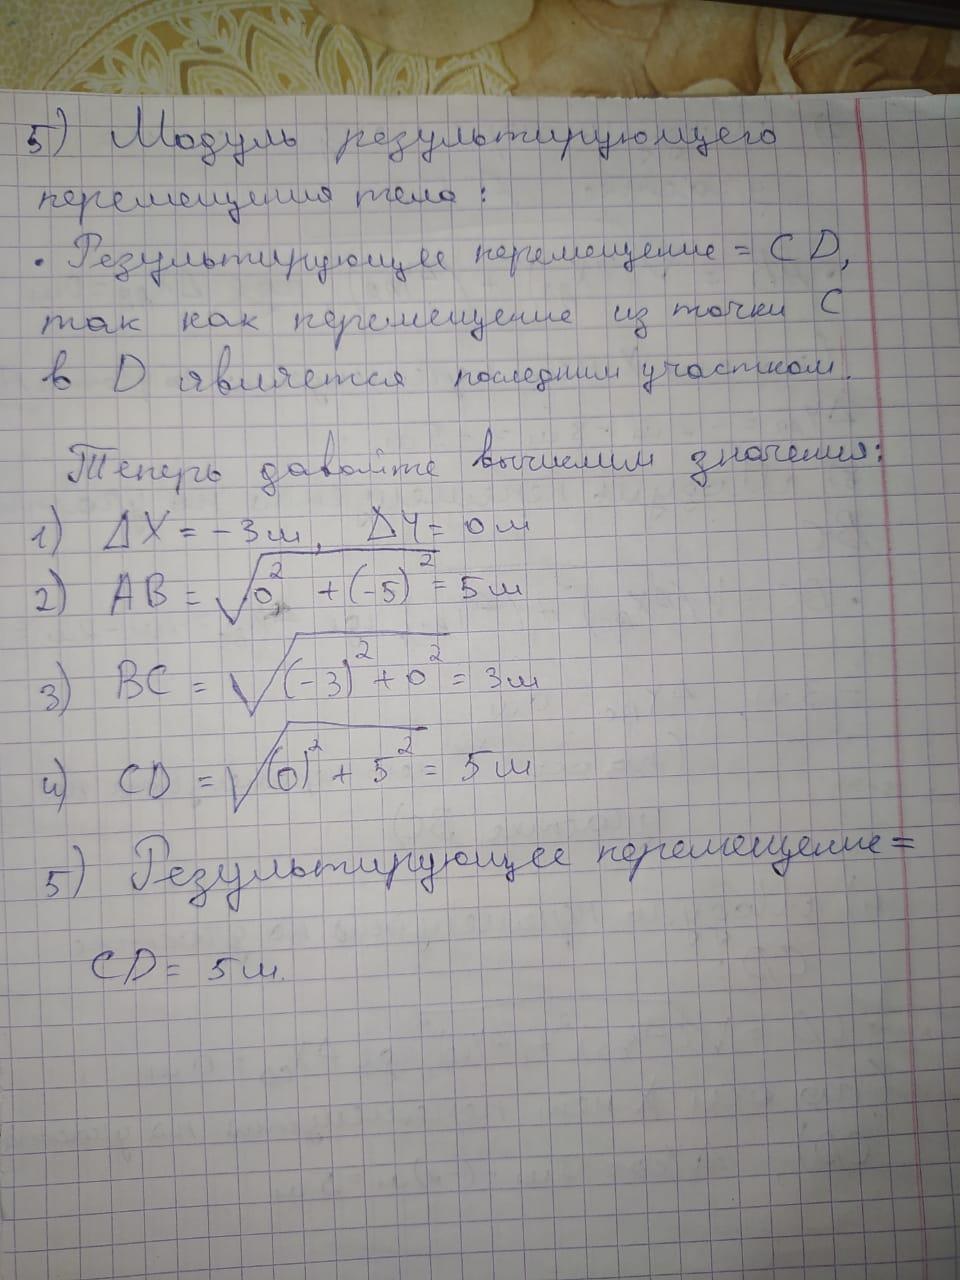 5) Модуль результирующего
перемещения тела:
• Результирующее перемещение = CD,
так как перемещение из точки C
в D является последним участком.
Теперь давайте вычислим значения:
1) ΔX = -3м, ΔY = 0м
2) AB = √(0² + (-5)²) = 5м
3) BC = √((-3)² + 0²) = 3м
4) CD = √((0)² + 5²) = 5м
5) Результирующее перемещение =
CD = 5м.